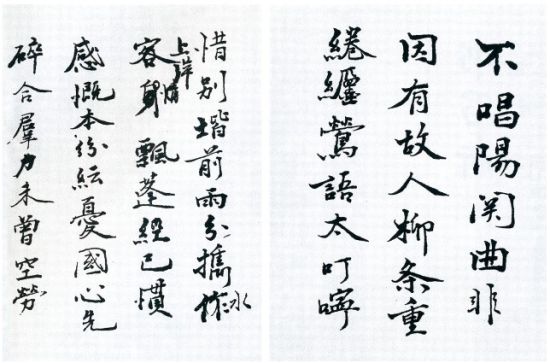 不唱陽関曲非
因有故人柳条重
綣繾鶯語太叮嚀
惜別堦前雨分攜水
上岸
客身飄蓬經已慣
感慨本紛紜憂國心先
碎合羣力未曾空勞